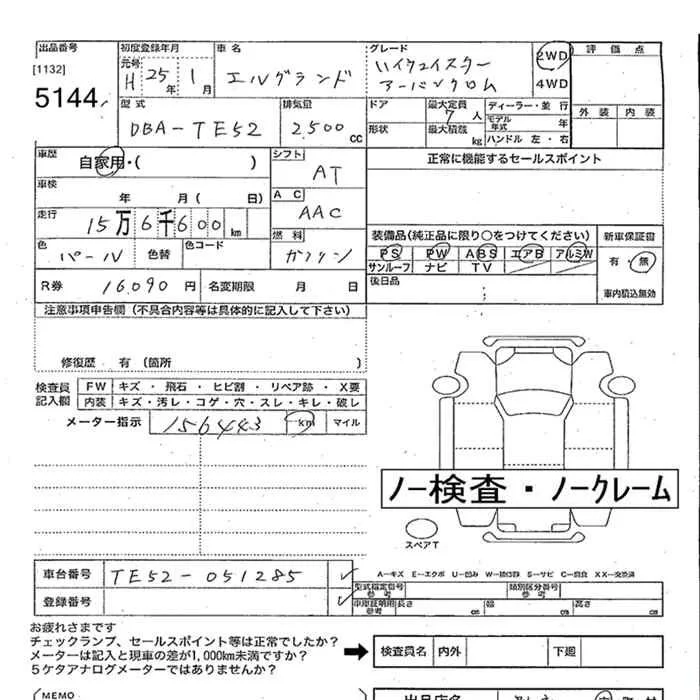 出品番号 初度登録年月 車名 グレード 評価点
[1132] 元号 H 25年 1月 エルグランド ハイウェイスター アーバンクロム 2WD 4WD
5144 外装 内装
型式 排気量 ドア 最大定員 7人 ディーラー・並行
DBA-TE52 2,500cc 形状 最大積載 kg モデル年式 年
ハンドル 左・右
車歴 自家用・( ) シフト AT 正常に機能するセールスポイント
車検 年 月( 日) AC AAC
走行 15万6千600km 燃料 ガソリン
装備品(純正品に限り○をつけてください) 新車保証書
色 パール 色替 色コード
PS PW ABS エアB アルミW 有・無
サンルーフ ナビ TV
R券 16,090円 名変期限 月 日 後日品 車内積込無効
注意事項申告欄(不具合内容等は具体的に記入して下さい)
修復歴 有(箇所 )
検査員記入欄 FW キズ・飛石・ヒビ割・リペア跡・X要
内装 キズ・汚レ・コゲ・穴・スレ・キレ・破レ
メーター指示 156443 km マイル
ノー検査・ノークレーム
スペアT
A-キズ E-エクボ U-凹み
車台番号 TE52-051285
型式指定番号 参考 類別区分番号 参考
登録番号
車庫証明用 参考 長さ cm 幅 cm 高さ cm
お疲れさまです
チェックランプ、セールスポイント等は正常でしたか?
メーターは記入と現車の差が1,000km未満ですか?
5ケタアナログメーターではありませんか?
検査員名 内外 下廻
MEMO
出品店名